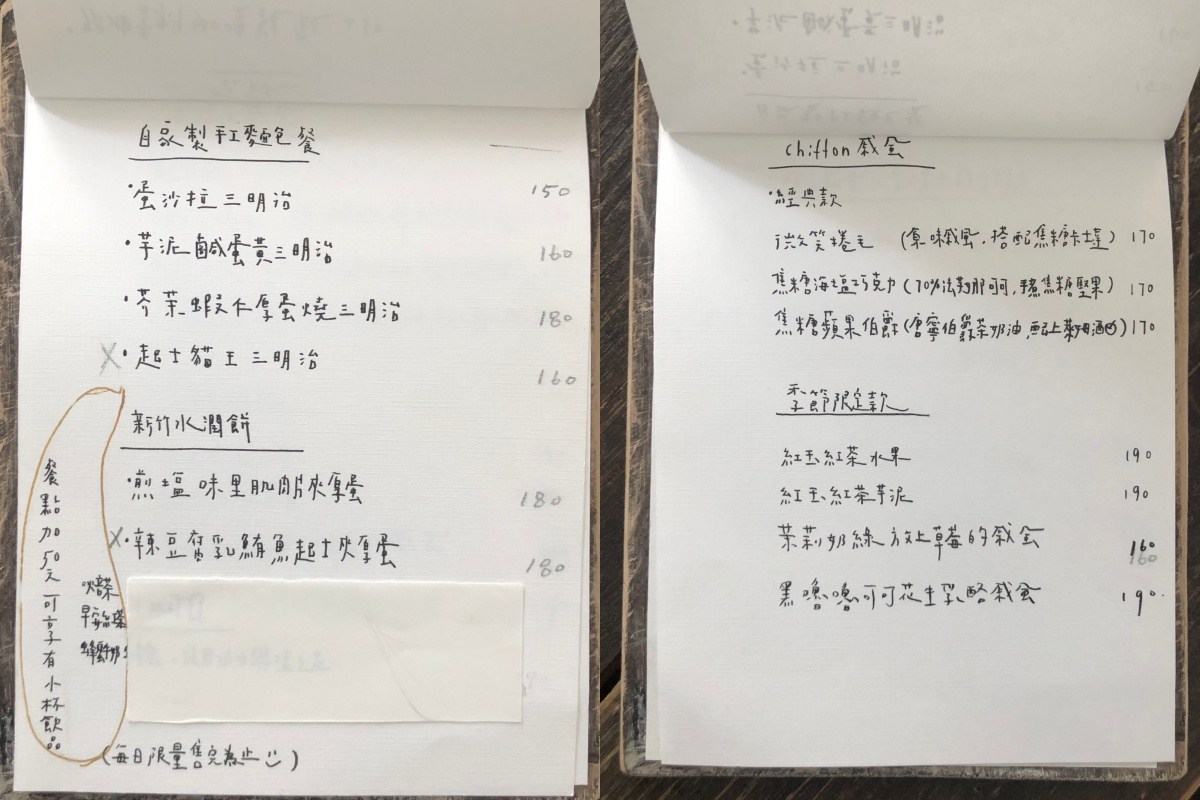 自家製手工麵包餐
·蛋沙拉三明治 150
·芋泥鹹蛋黃三明治 160
·芥茉蝦仁厚蛋燒三明治 180
X·起士貓王三明治 160
新竹水潤餅
·煎塩味里肌肉片夾厚蛋 180
X·辣豆腐乳鮪魚起士夾厚蛋 180
餐點加50元可享有小杯飲品
(每日限量售完為止)
Chiffon 戚風
·經典款
微笑捲毛 (原味戚風,搭配焦糖卡士達) 170
焦糖海塩巧克力 (70%法芙娜可可,焦糖堅果) 170
焦糖蘋果伯爵 (唐寧伯爵茶奶油,配上蘭姆酒) 170
季節限定款
紅玉紅茶水果 190
紅玉紅茶芋泥 190
茉莉奶綠放上草莓的戚風 160
黑嚕嚕可可花生乳酪戚風 190